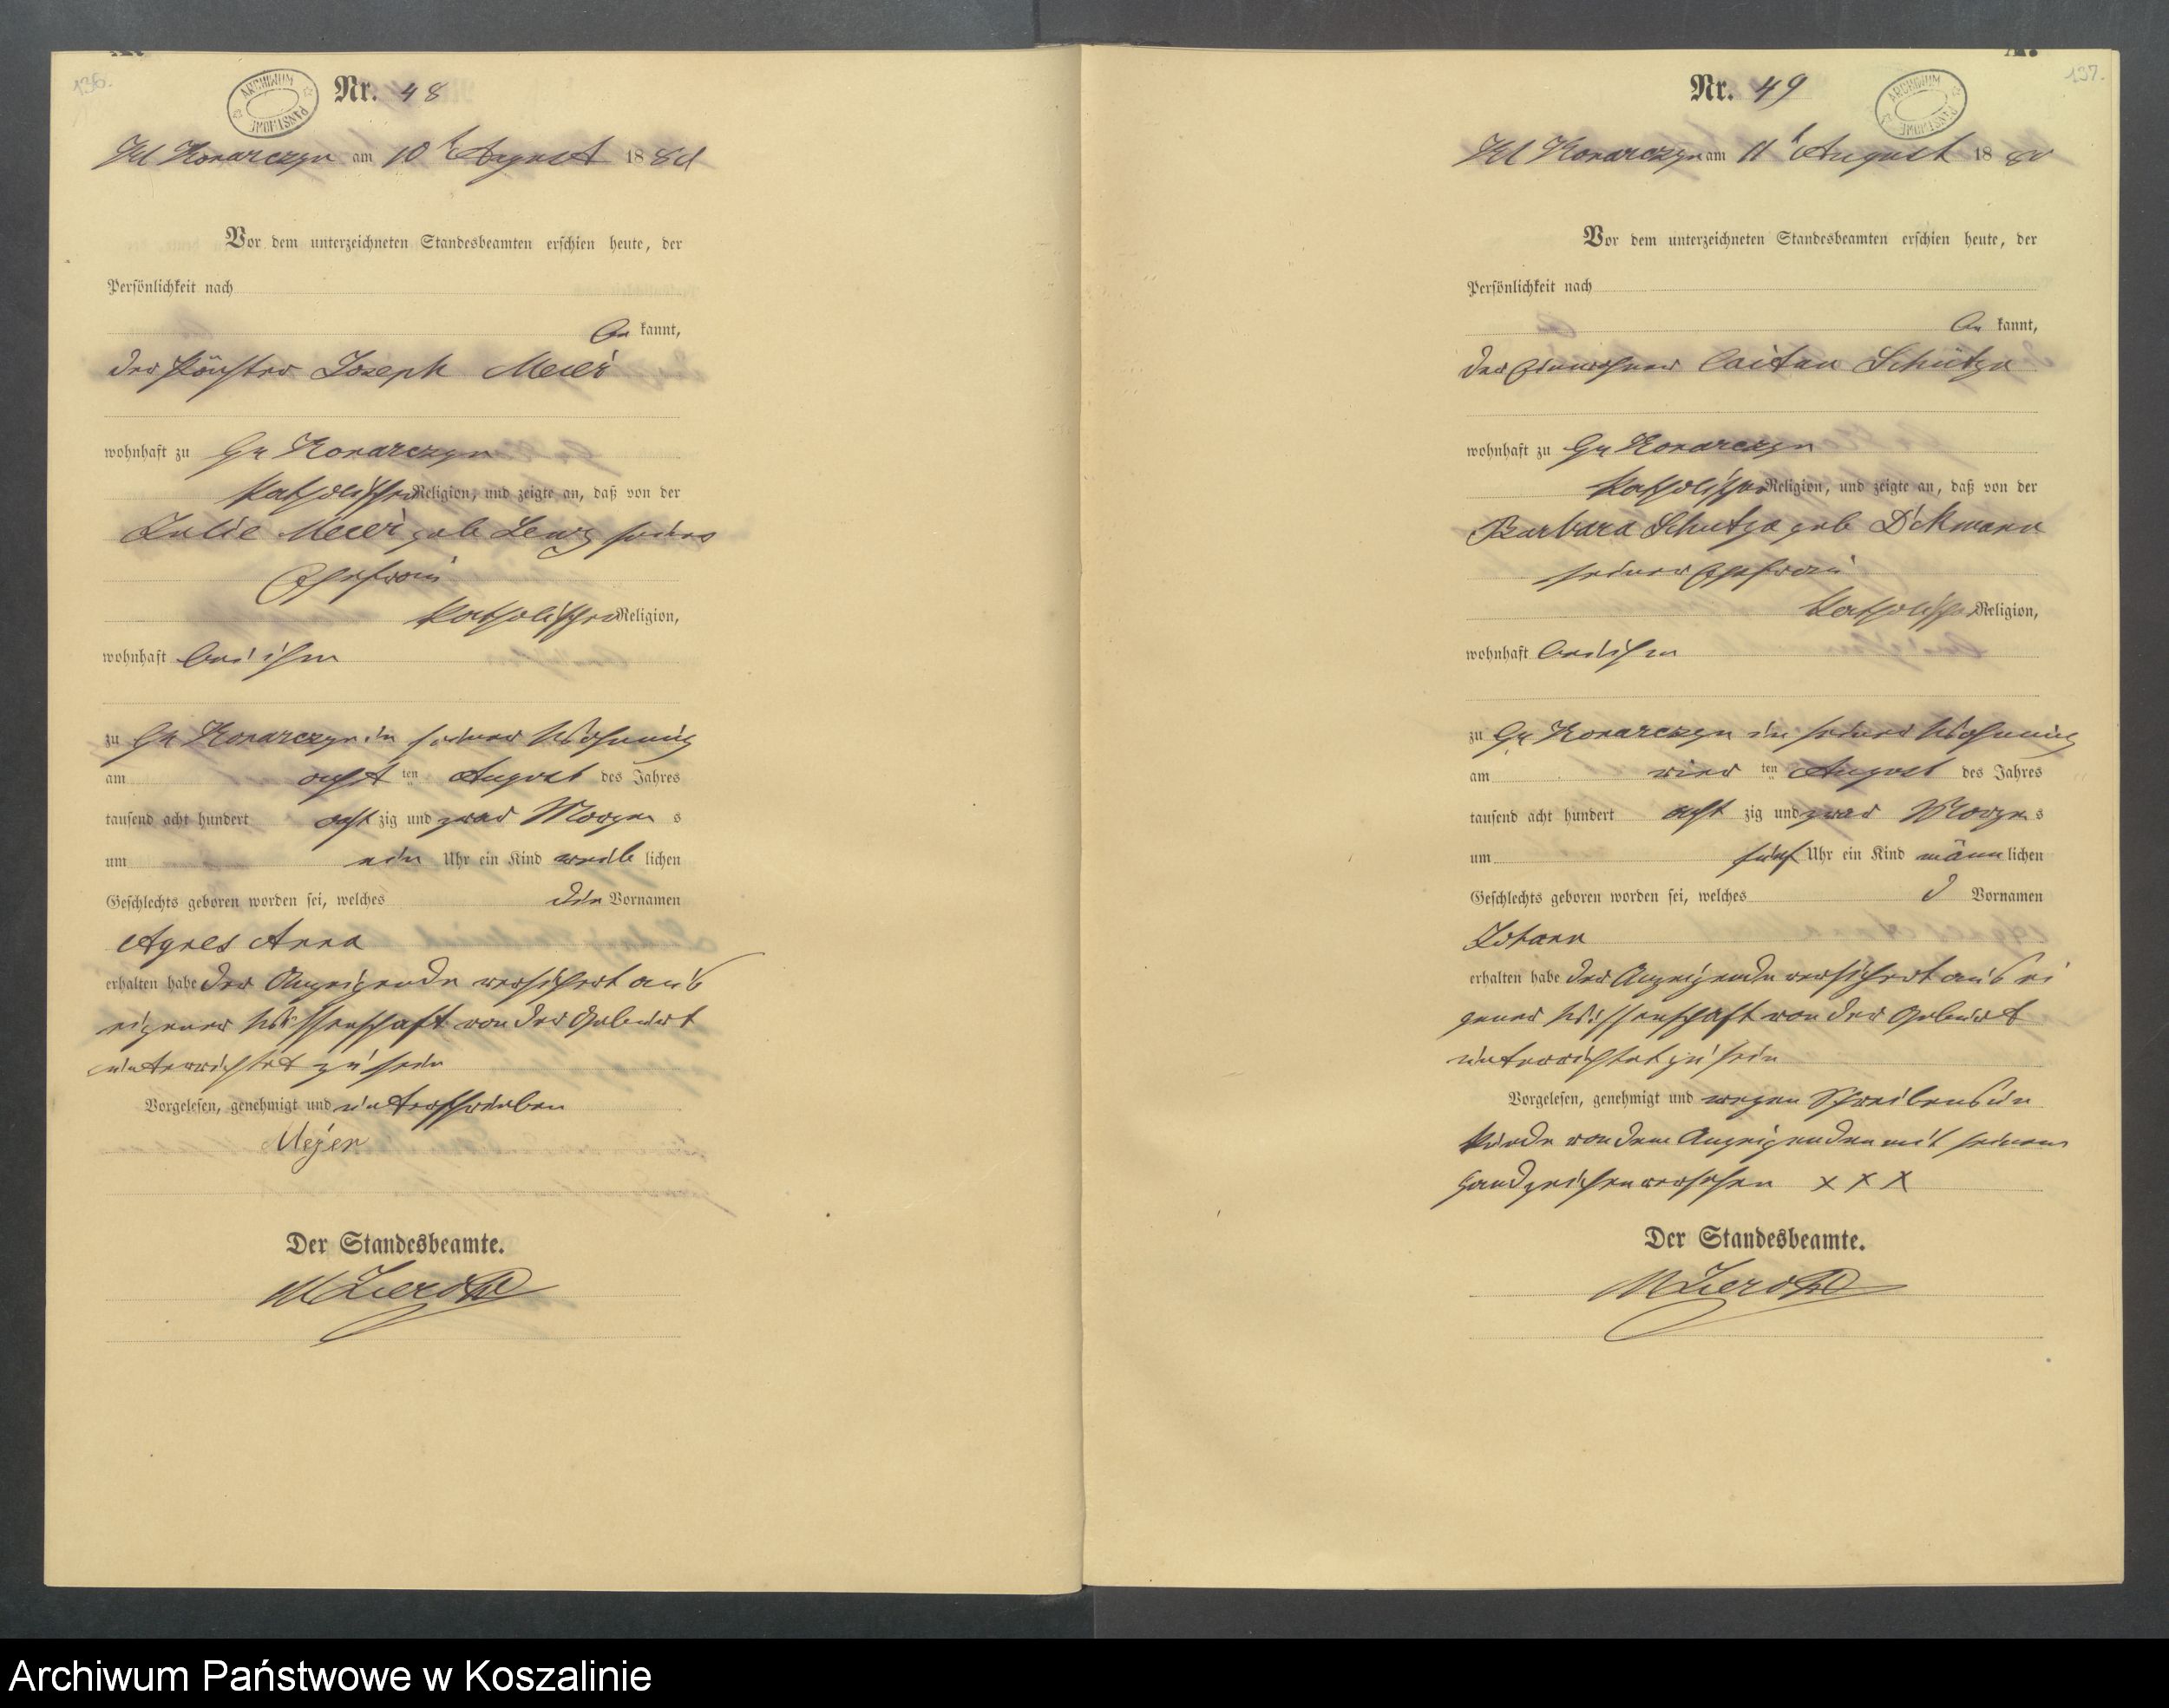 A.
136.
ARCHIWUM PAŃSTWOWE
Nr. 48
Kl Konarczyn am 10t August 1880
Vor dem unterzeichneten Standesbeamten erschien heute, der
Persönlichkeit nach
be kannt,
der Joseph Meier
wohnhaft zu Gr Konarczyn
katholischer Religion, und zeigte an, daß von der
Julie Meier geb seiner
Ehefrau
katholischer Religion,
wohnhaft bei ihm
zu Gr Konarczyn in seiner Wohnung
am acht ten August des Jahres
tausend acht hundert acht zig und zwar Morgen s
um ein Uhr ein Kind weib lichen
Geschlechts geboren worden sei, welches die Vornamen
Agnes Anna
erhalten habe der Anzeigende versichert aus
eigener Wissenschaft von der Geburt
unterrichtet zu sein
Vorgelesen, genehmigt und unterschrieben
Mejer
Der Standesbeamte.
A.
137.
ARCHIWUM PAŃSTWOWE
Nr. 49
Kl Konarczyn am 11t August 1880
Vor dem unterzeichneten Standesbeamten erschien heute, der
Persönlichkeit nach
be kannt,
der Einwohner Caitan Schütza
wohnhaft zu Gr Konarczyn
katholischer Religion, und zeigte an, daß von der
Barbara Schutza geb Dickmann
seiner Ehefrau
katholischer Religion,
wohnhaft bei ihm
zu Gr Konarczyn in seiner Wohnung
am vier ten August des Jahres
tausend acht hundert acht zig und zwar Morgen s
um fünf Uhr ein Kind männ lichen
Geschlechts geboren worden sei, welches d Vornamen
Johann
erhalten habe der Anzeigende versichert aus ei
gener Wissenschaft von der Geburt
unterrichtet zu sein
Vorgelesen, genehmigt und wegen Schreibensun
kunde von dem Anzeigenden mit seinem
Handzeichen versehen x x x
Der Standesbeamte.
Archiwum Państwowe w Koszalinie